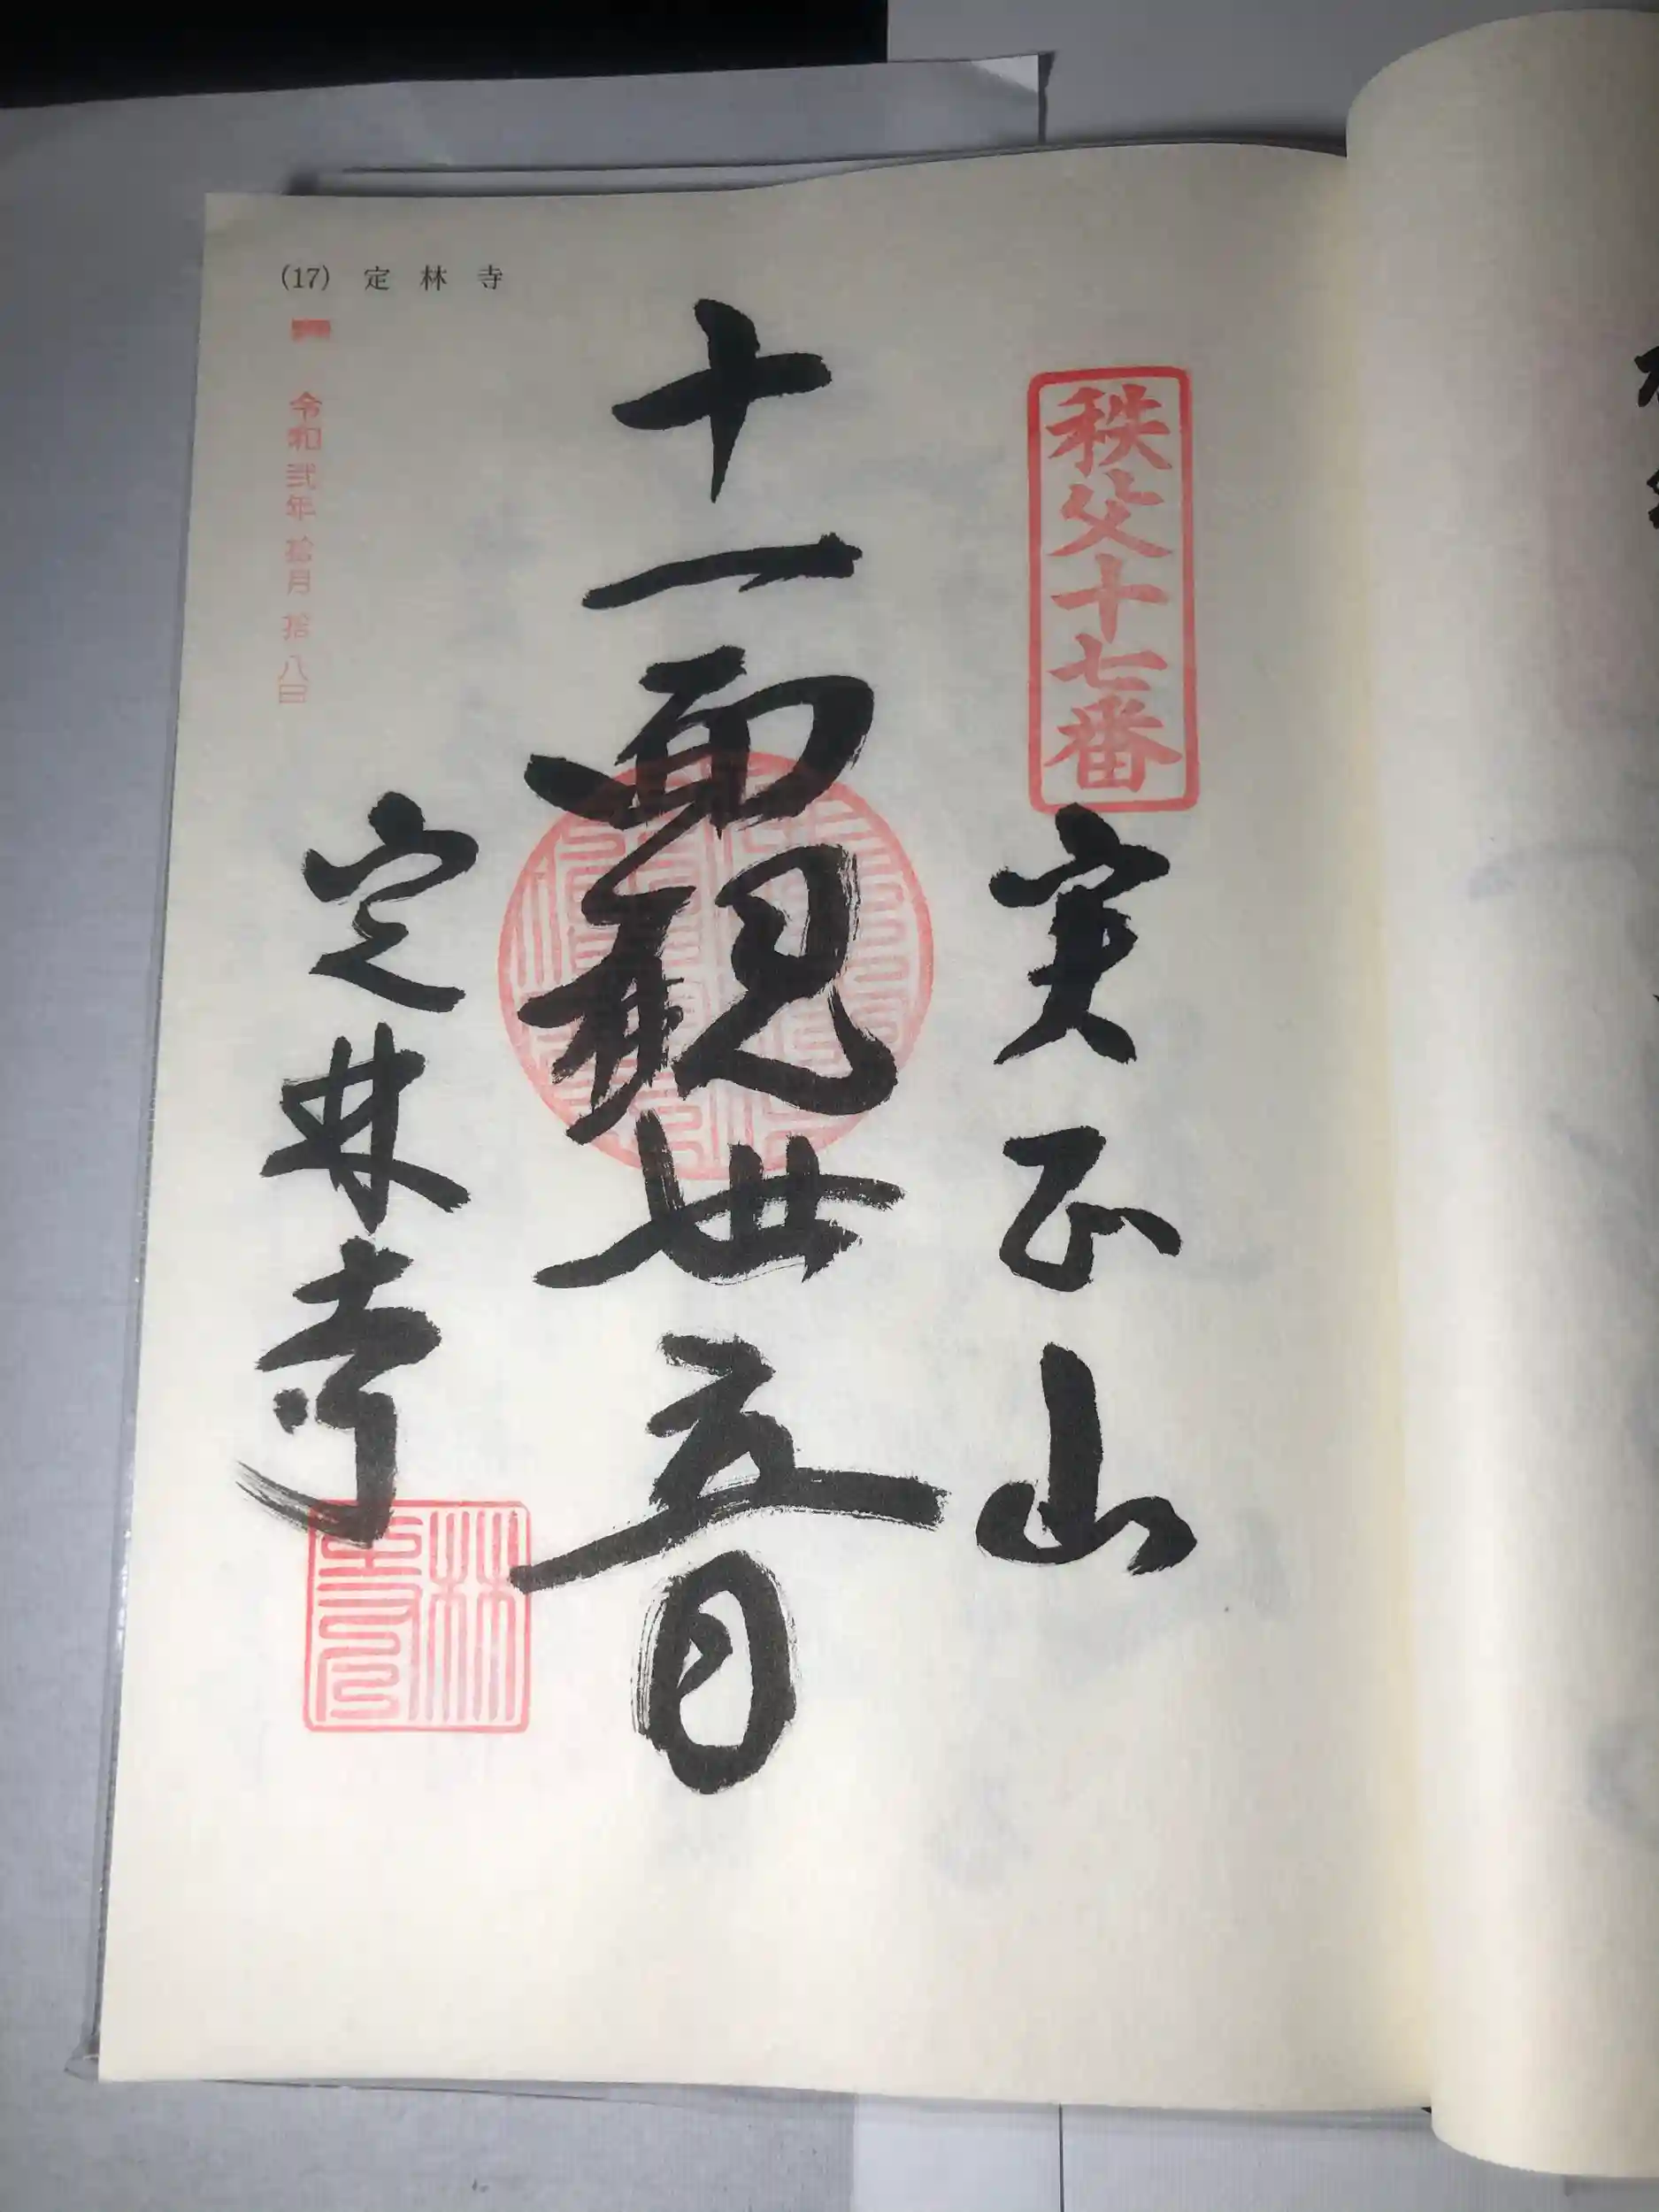 (17) 定林寺
秩父十七番
実正山
十一面観世音
定林寺
令和弐年拾月拾八日